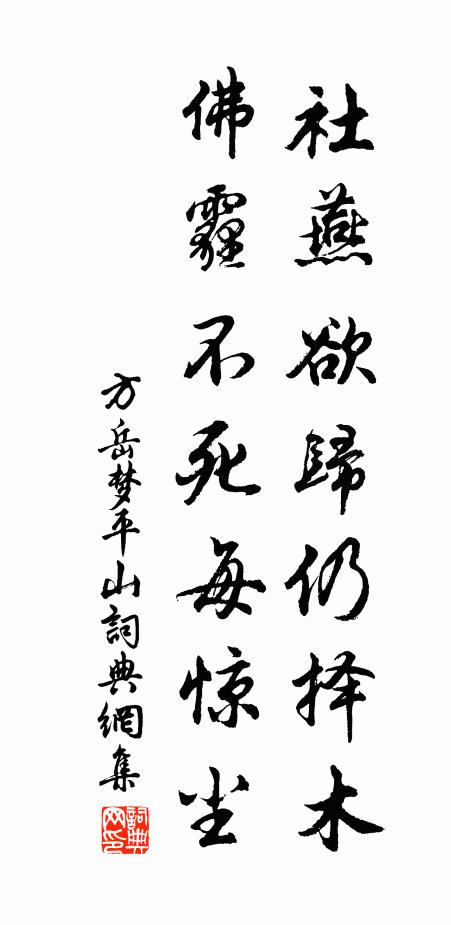 社燕欲歸仍择木
佛霾不死每惊尘
方岳梦平山詞典網集
詞典网印